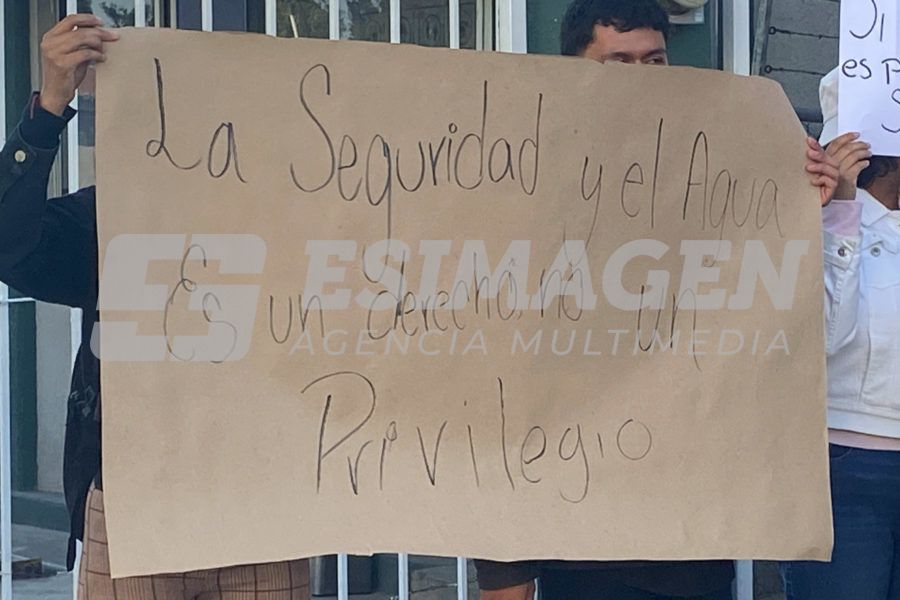 La Seguridad y el Agua
Es un derecho, no un
Privilegio
ESIMAGEN
AGENCIA MULTIMEDIA
SI
es p
S